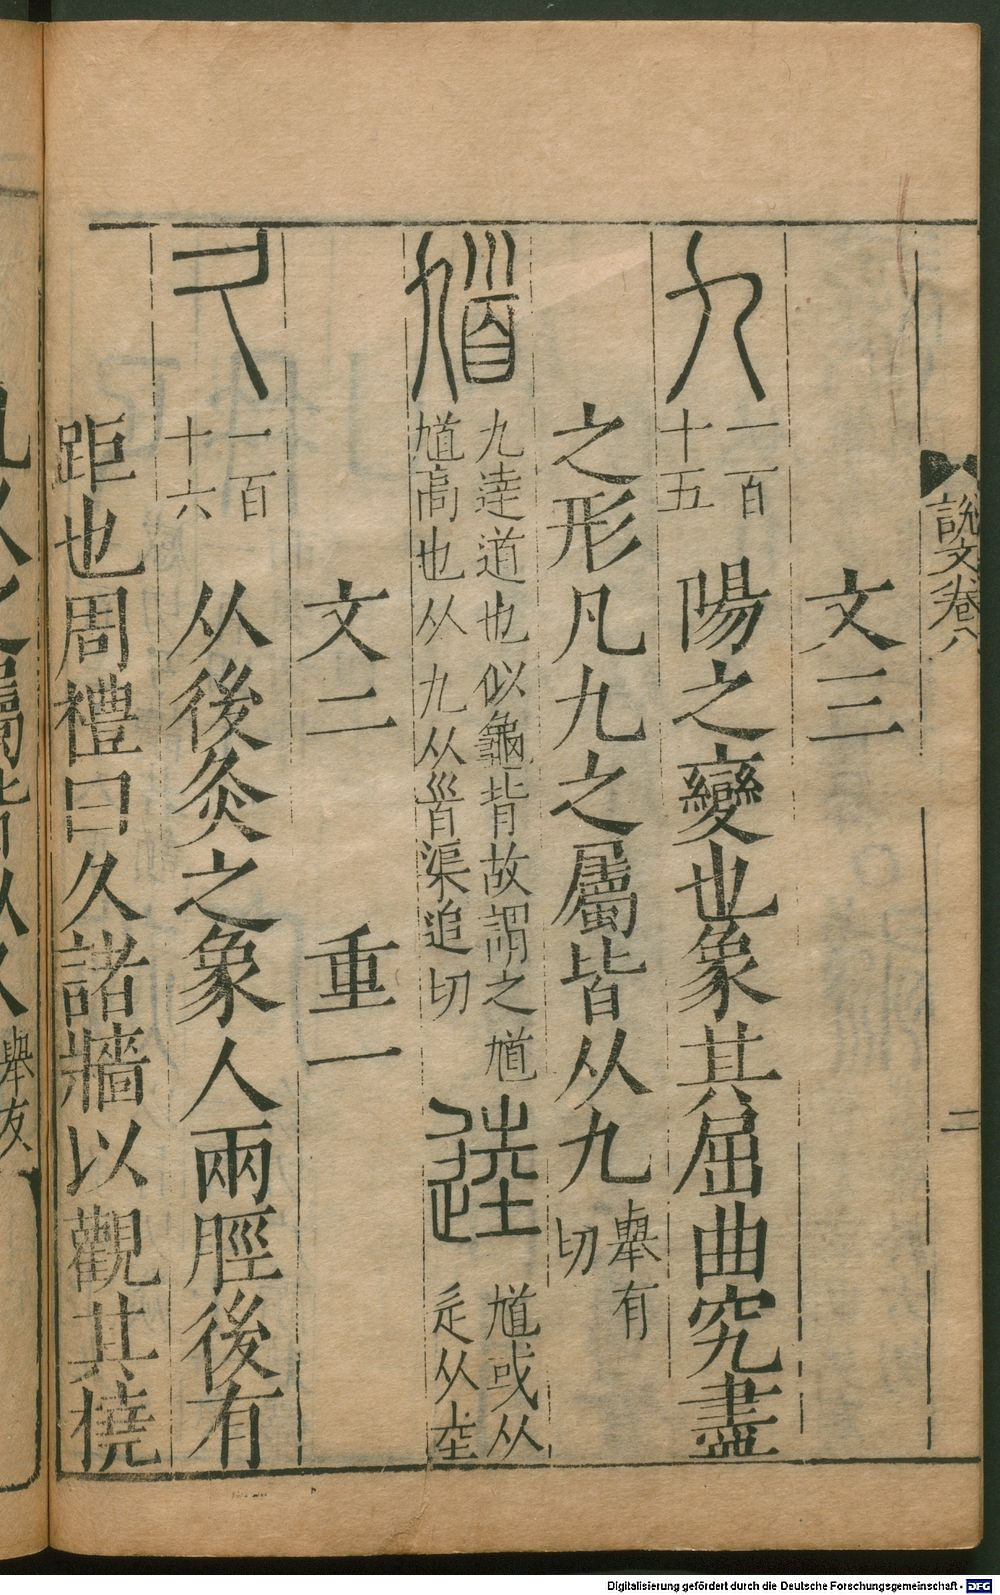 說文卷八
二
文三
九
一百
十五
陽之變也象其屈曲究盡
之形凡九之屬皆从九
舉有
切
馗
九逵道也似龜背故謂之馗
馗高也从九从𩠐渠追切
逵
馗或从
辵从坴
文二
重一
久
一百
十六
从後灸之象人兩脛後有
距也周禮曰久諸牆以觀其橈
舉友
Digitalisierung gefördert durch die Deutsche Forschungsgemeinschaft - DFG